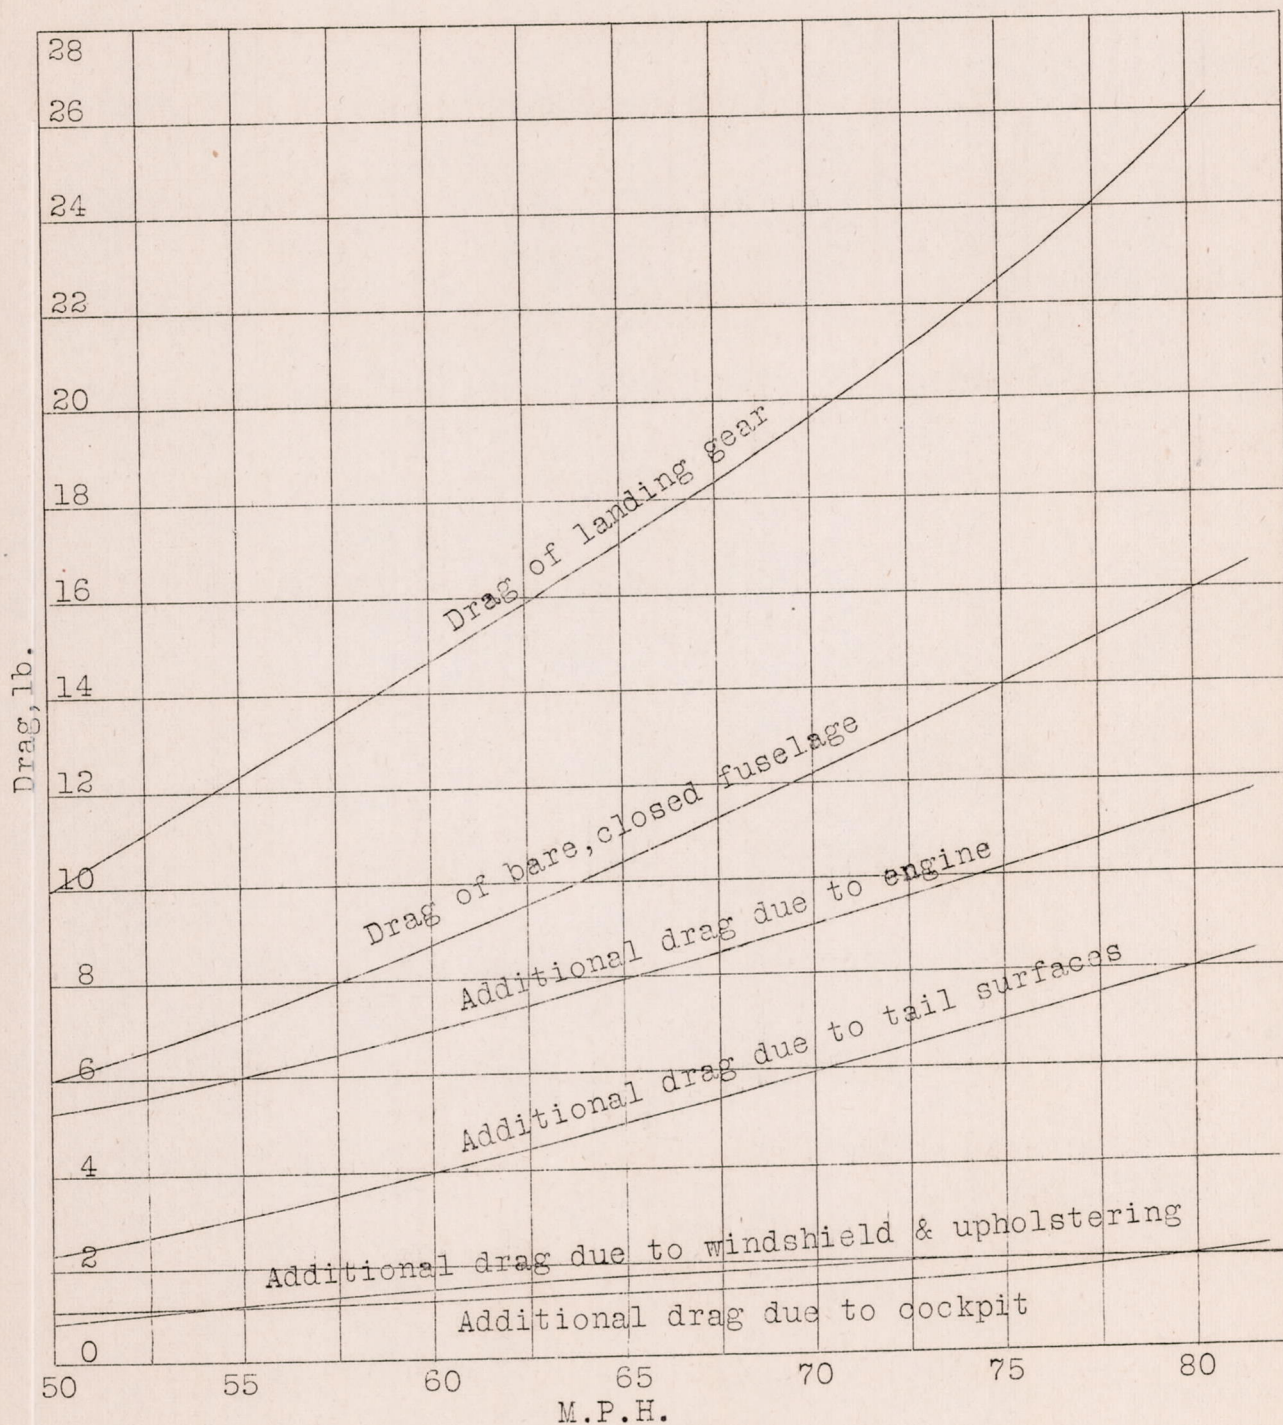 28
26
24
22
20
18
16
14
12
10
8
6
4
2
0
Drag,lb.
Drag of landing gear
Drag of bare,closed fuselage
Additional drag due to engine
Additional drag due to tail surfaces
Additional drag due to windshield & upholstering
Additional drag due to cockpit
50 55 60 65 70 75 80
M.P.H.